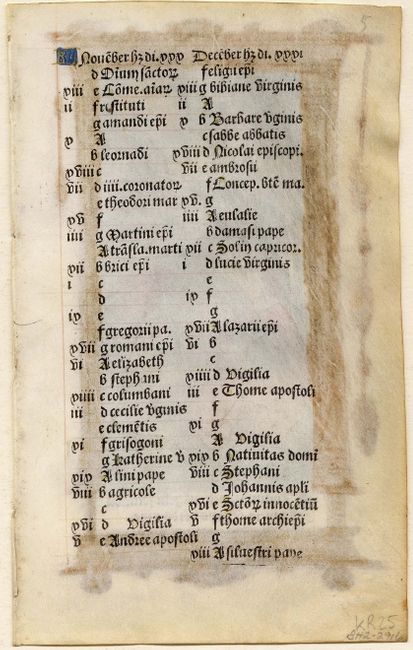 5
KL Nouēber hȝ di. xxx Decēber hȝ di. xxxi
d Oīum sāctoꝝ f eligii ep̄i
xiii e Cōme. aīaꝝ xiii g bibiane virginis
ii f restituti ii A
g amandi ep̄i x b Barbare v̄ginis
x A c sabbe abbatis
b leornadi xviii d Nicolai episcopi.
xviii c vii e ambrosii
vii d iiii. coronatoꝝ f Concep. btē ma.
e theodori mar xv. g
xv f iiii A eulalie
iiii g Martini ep̄i b damasi pape
A trāsla. marti xii c Sol in capricor.
xii b brici ep̄i i d lucie virginis
i c e
d ix f
ix e g
f gregorii pa. xvii A lazarii ep̄i
xvii g romani ep̄i vi b
vi A elizabeth c
b steph mi xiiii d Vigilia
xiiii c columbani iii e Thome apostoli
iii d cecilie v̄ginis f
e clemētis xi g
xi f grisogoni A Vigilia
g katherine v xix b Natiuitas domī
xix A lini pape viii c Stephani
viii b agricole d Johannis apl̄i
c xvi e Sctōꝝ innocētiū
xvi d Vigilia v f thome archiep̄i
v e Andree apostoli g
xiii A siluestri pape
KR25